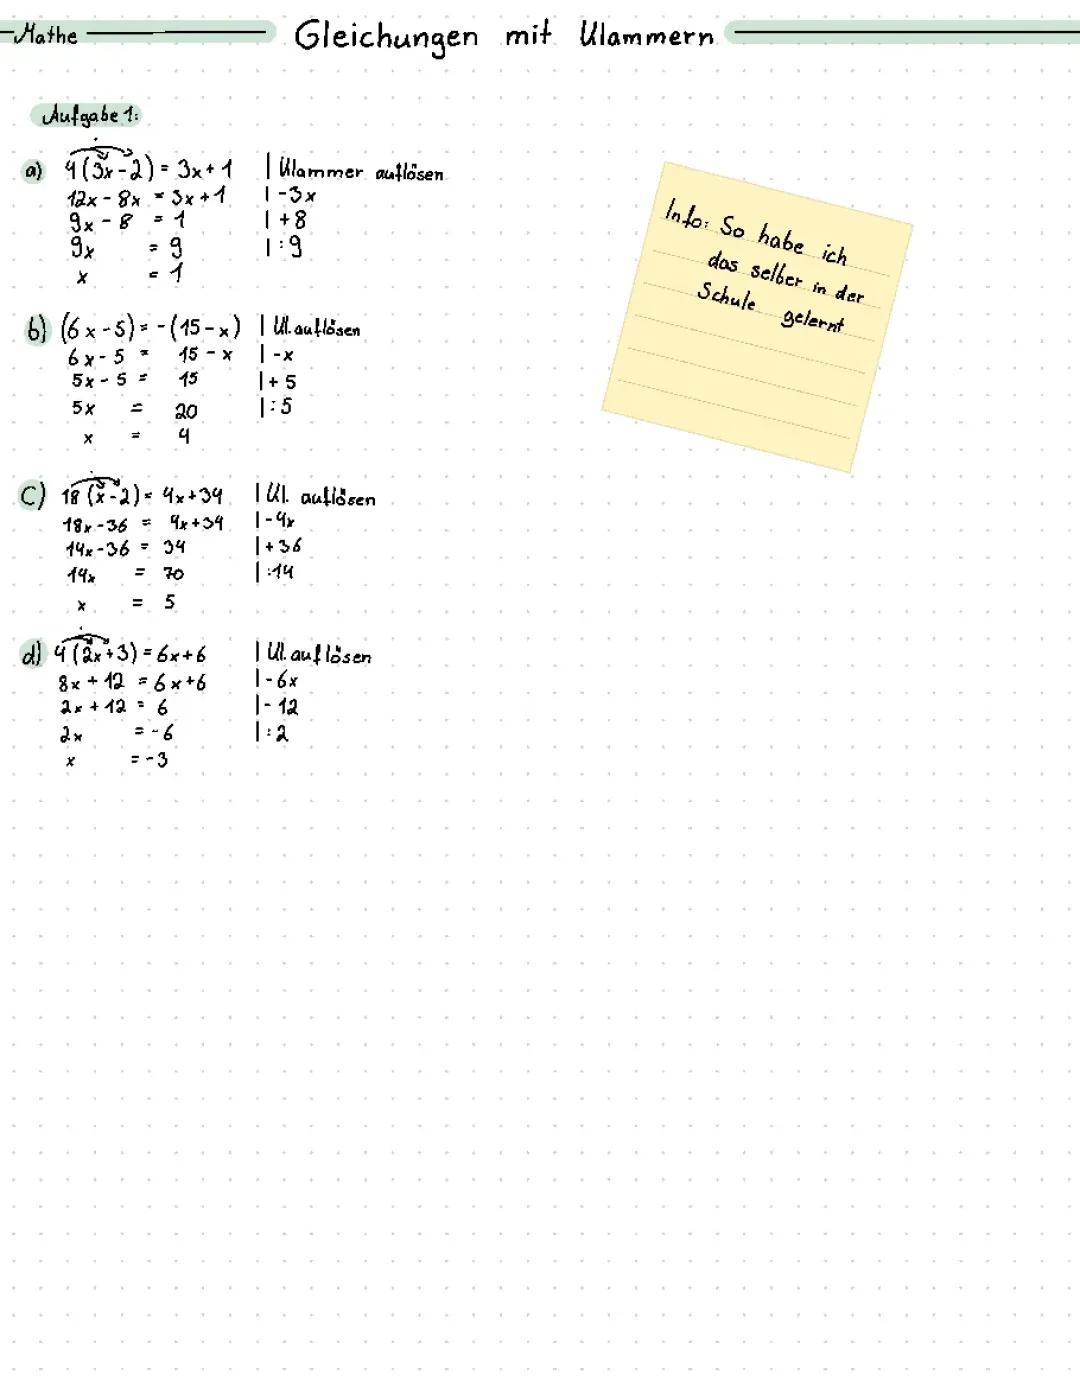 Mathe
Gleichungen mit Klammern
Aufgabe 1:
a) 4(3x-2) = 3x+1 | Klammer auflösen
12x - 8x = 3x+1 | -3x
9x - 8 = 1 | +8
9x = 9 | :9
x = 1
b) (6x-5) = -(15-x) | Kl. auflösen
6x-5 = 15-x | -x
5x-5 = 15 | +5
5x = 20 | :5
x = 4
c) 18(x-2) = 4x+34 | Kl. auflösen
18x-36 = 4x+34 | -4x
14x-36 = 34 | +36
14x = 70 | :14
x = 5
d) 4(2x+3) = 6x+6 | Kl. auflösen
8x+12 = 6x+6 | -6x
2x+12 = 6 | -12
2x = -6 | :2
x = -3
Info: So habe ich
das selber in der
Schule gelernt